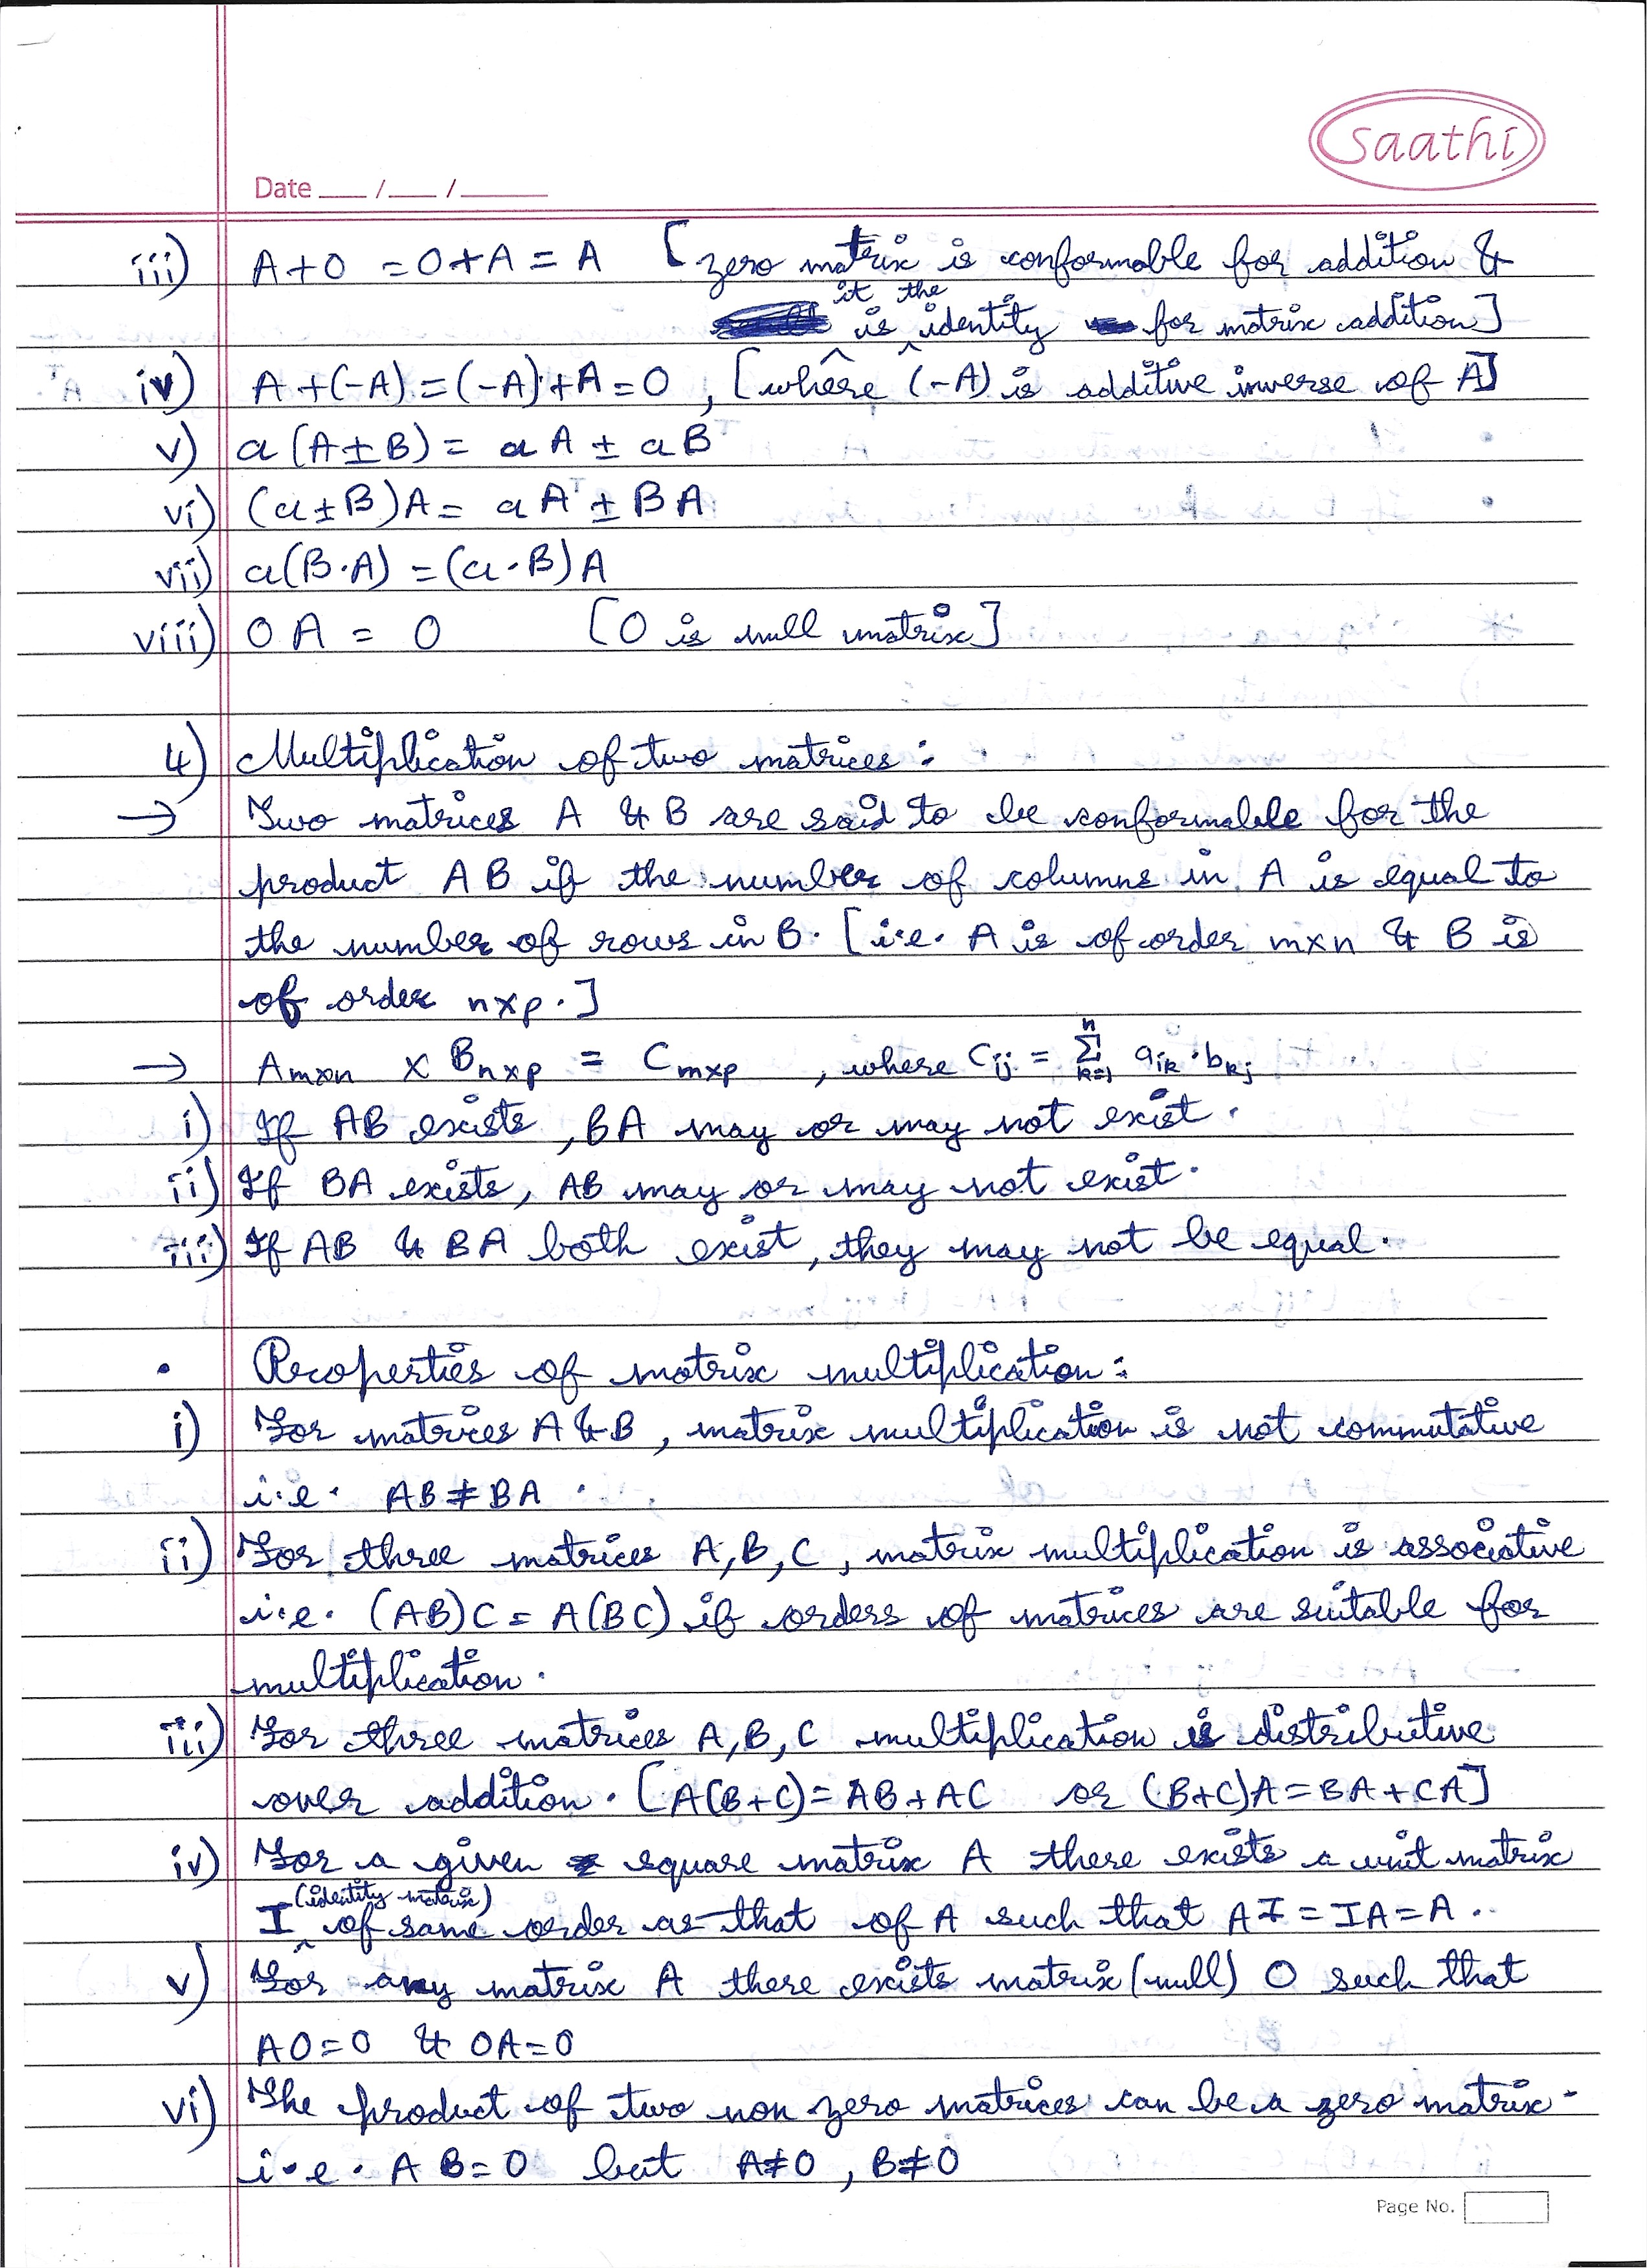 Saathi
Date ___/___/______
iii) A+0 = 0+A = A [zero matrix is conformable for addition &
it is the identity for matrix addition]
iv) A+(-A)=(-A)+A=0, [where (-A) is additive inverse of A]
v) a(A±B)= aA ± aB
vi) (a±B)A= aA ± BA
vii) a(B·A) = (a·B)A
viii) 0A = 0 [0 is null matrix]
4) Multiplication of two matrices:
→ Two matrices A & B are said to be conformable for the
product AB if the number of columns in A is equal to
the number of rows in B. [i.e. A is of order m×n & B is
of order n×p.]
→ Am×n × Bn×p = Cm×p, where Cij = Σ(k=1 to n) aik·bkj
i) If AB exists, BA may or may not exist.
ii) If BA exists, AB may or may not exist.
iii) If AB & BA both exist, they may not be equal.
• Properties of matrix multiplication:
i) For matrices A & B, matrix multiplication is not commutative
i.e. AB≠BA.
ii) For three matrices A, B, C, matrix multiplication is associative
i.e. (AB)C = A(BC) if orders of matrices are suitable for
multiplication.
iii) For three matrices A, B, C multiplication is distributive
over addition. [A(B+C)=AB+AC or (B+C)A=BA+CA]
iv) For a given square matrix A there exists a unit matrix
I (identity matrix) of same order as that of A such that AI=IA=A..
v) For any matrix A there exists matrix (null) 0 such that
A0=0 & 0A=0
vi) The product of two non zero matrices can be a zero matrix-
i.e. AB=0 but A≠0, B≠0
Page No.